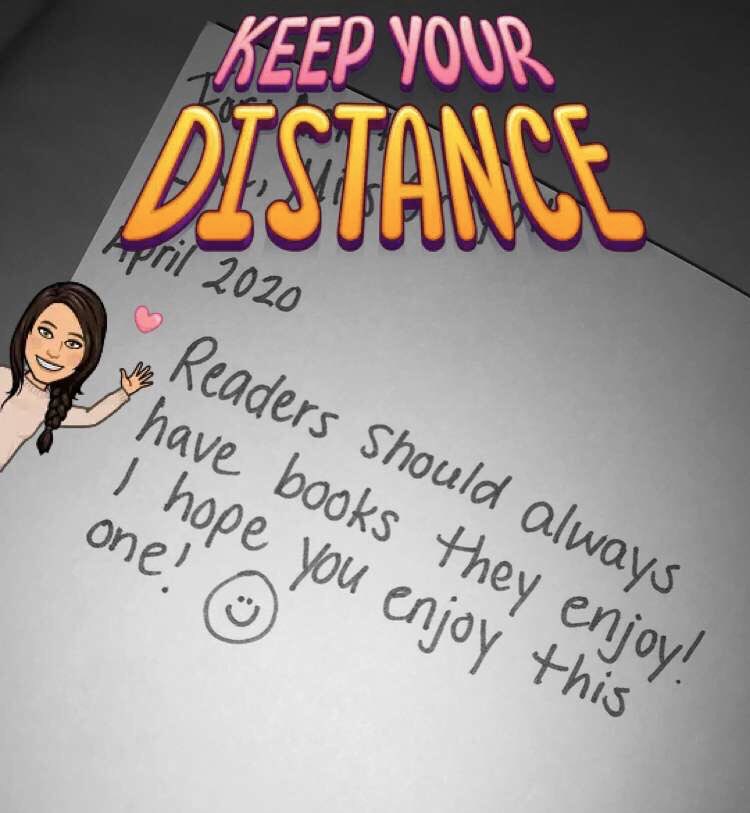 KEEP YOUR
DISTANCE
April 2020
Readers should always
have books they enjoy!
I hope you enjoy this
one!